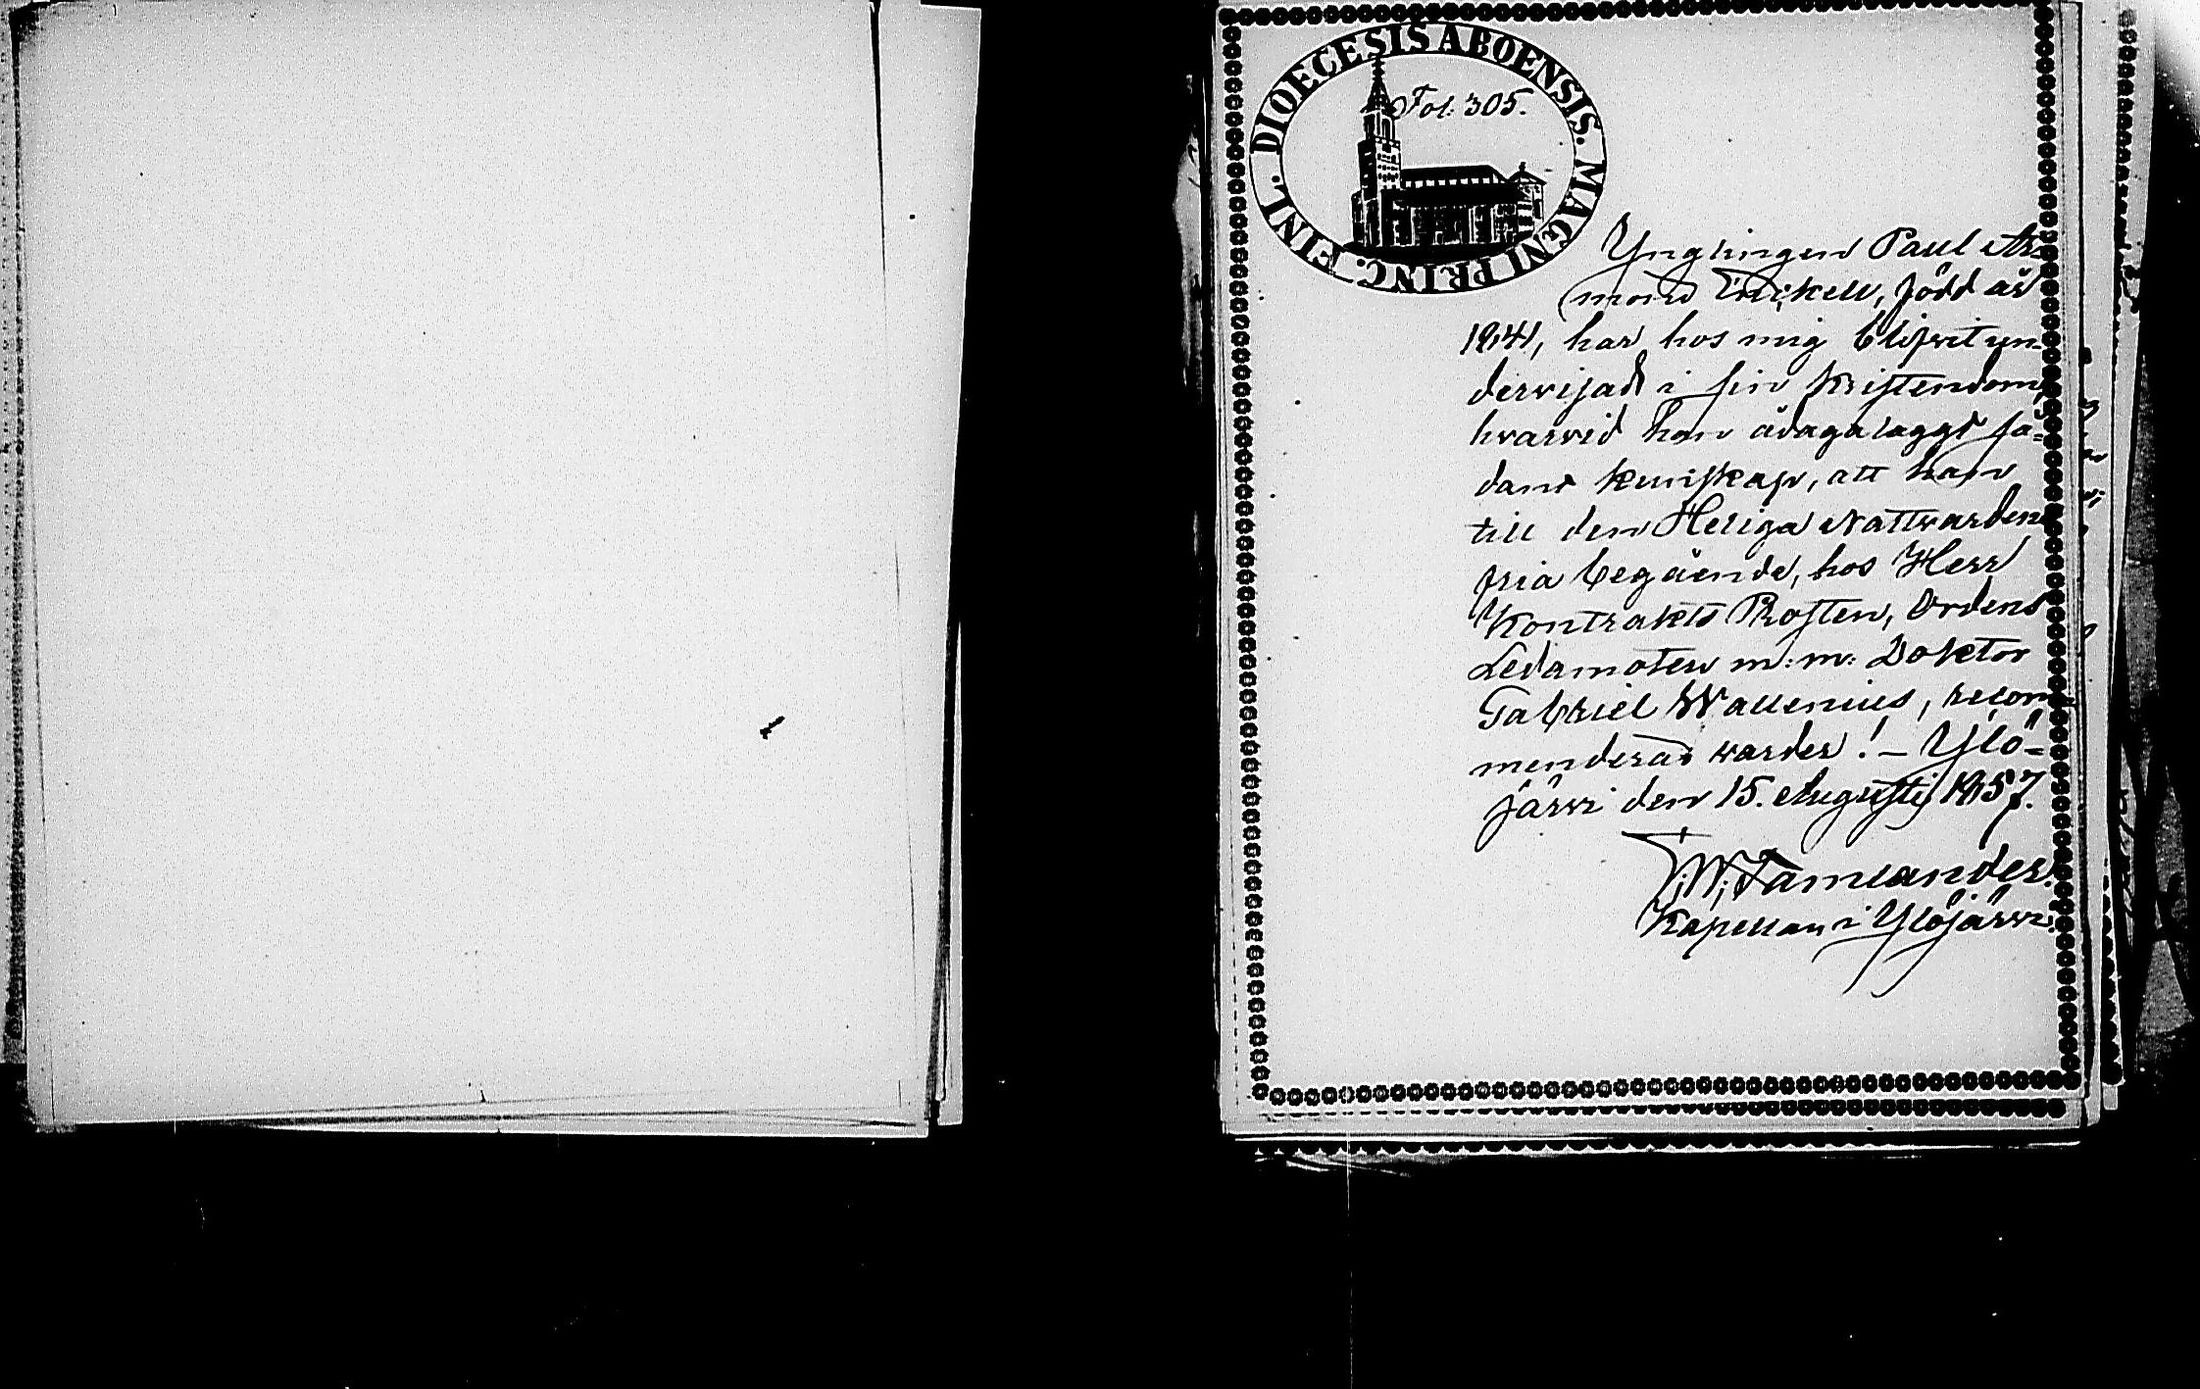 DIOECESIS ABOENSIS. MAGNI PRINC. FINL.
Fol: 305.
Ynglingen Paul Ar-
mond Enckell, född år
1841, har hos mig blifvit un-
dervisad i sin kristendom,
hvarvid han ådagalaggt så-
dan kunskap, att han
till den Heliga Nattvardens
fria begående, hos Herr
Kontrakts Prosten, Ordens
Ledamoten m: m: Doktor
Gabriel Wallenius, recom
menderas warder! - Ylö-
järvi den 15. Augusti 1857.
Kapellan i Ylöjärvi.